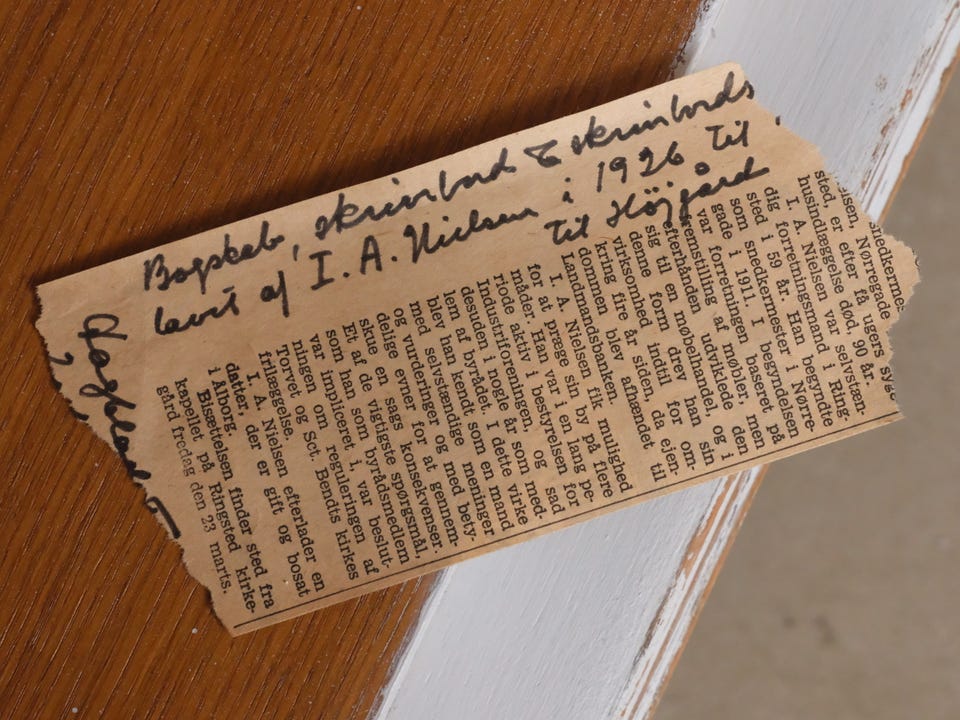 Bogskab, skrivbord & skrivbords
lavet af I. A. Nielsen i 1926 til
til Höjgård
Dagbladet
snedkermes-
lsen, Nørregade
sted, er efter få ugers syge-
husindlæggelse død, 90 år.
I. A. Nielsen var selvstæn-
dig forretningsmand i Ring-
sted i 59 år. Han begyndte
som snedkermester i Nørre-
gade i 1911. I begyndelsen
var forretningen baseret på
fremstilling af møbler, men
efterhånden udviklede den
sig til en møbelhandel, og i
denne form drev han sin
virksomhed indtil for om-
kring fire år siden, da ejen-
dommen blev afhændet til
Landmandsbanken.
I. A. Nielsen fik mulighed
for at præge sin by på flere
måder. Han var i en lang pe-
riode aktiv i bestyrelsen for
Industriforeningen, og sad
desuden i nogle år som med-
lem af byrådet. I dette virke
blev han kendt som en mand
med selvstændige meninger
og vurderinger og med bety-
delige evner for at gennem-
skue en sags konsekvenser.
Et af de vigtigste spørgsmål,
som han som byrådsmedlem
var impliceret i, var beslut-
ningen om reguleringen af
Torvet og Sct. Bendts kirkes
frilæggelse.
I. A. Nielsen efterlader en
datter, der er gift og bosat
i Ålborg.
Bisættelsen finder sted fra
kapellet på Ringsted kirke-
gård fredag den 23 marts.